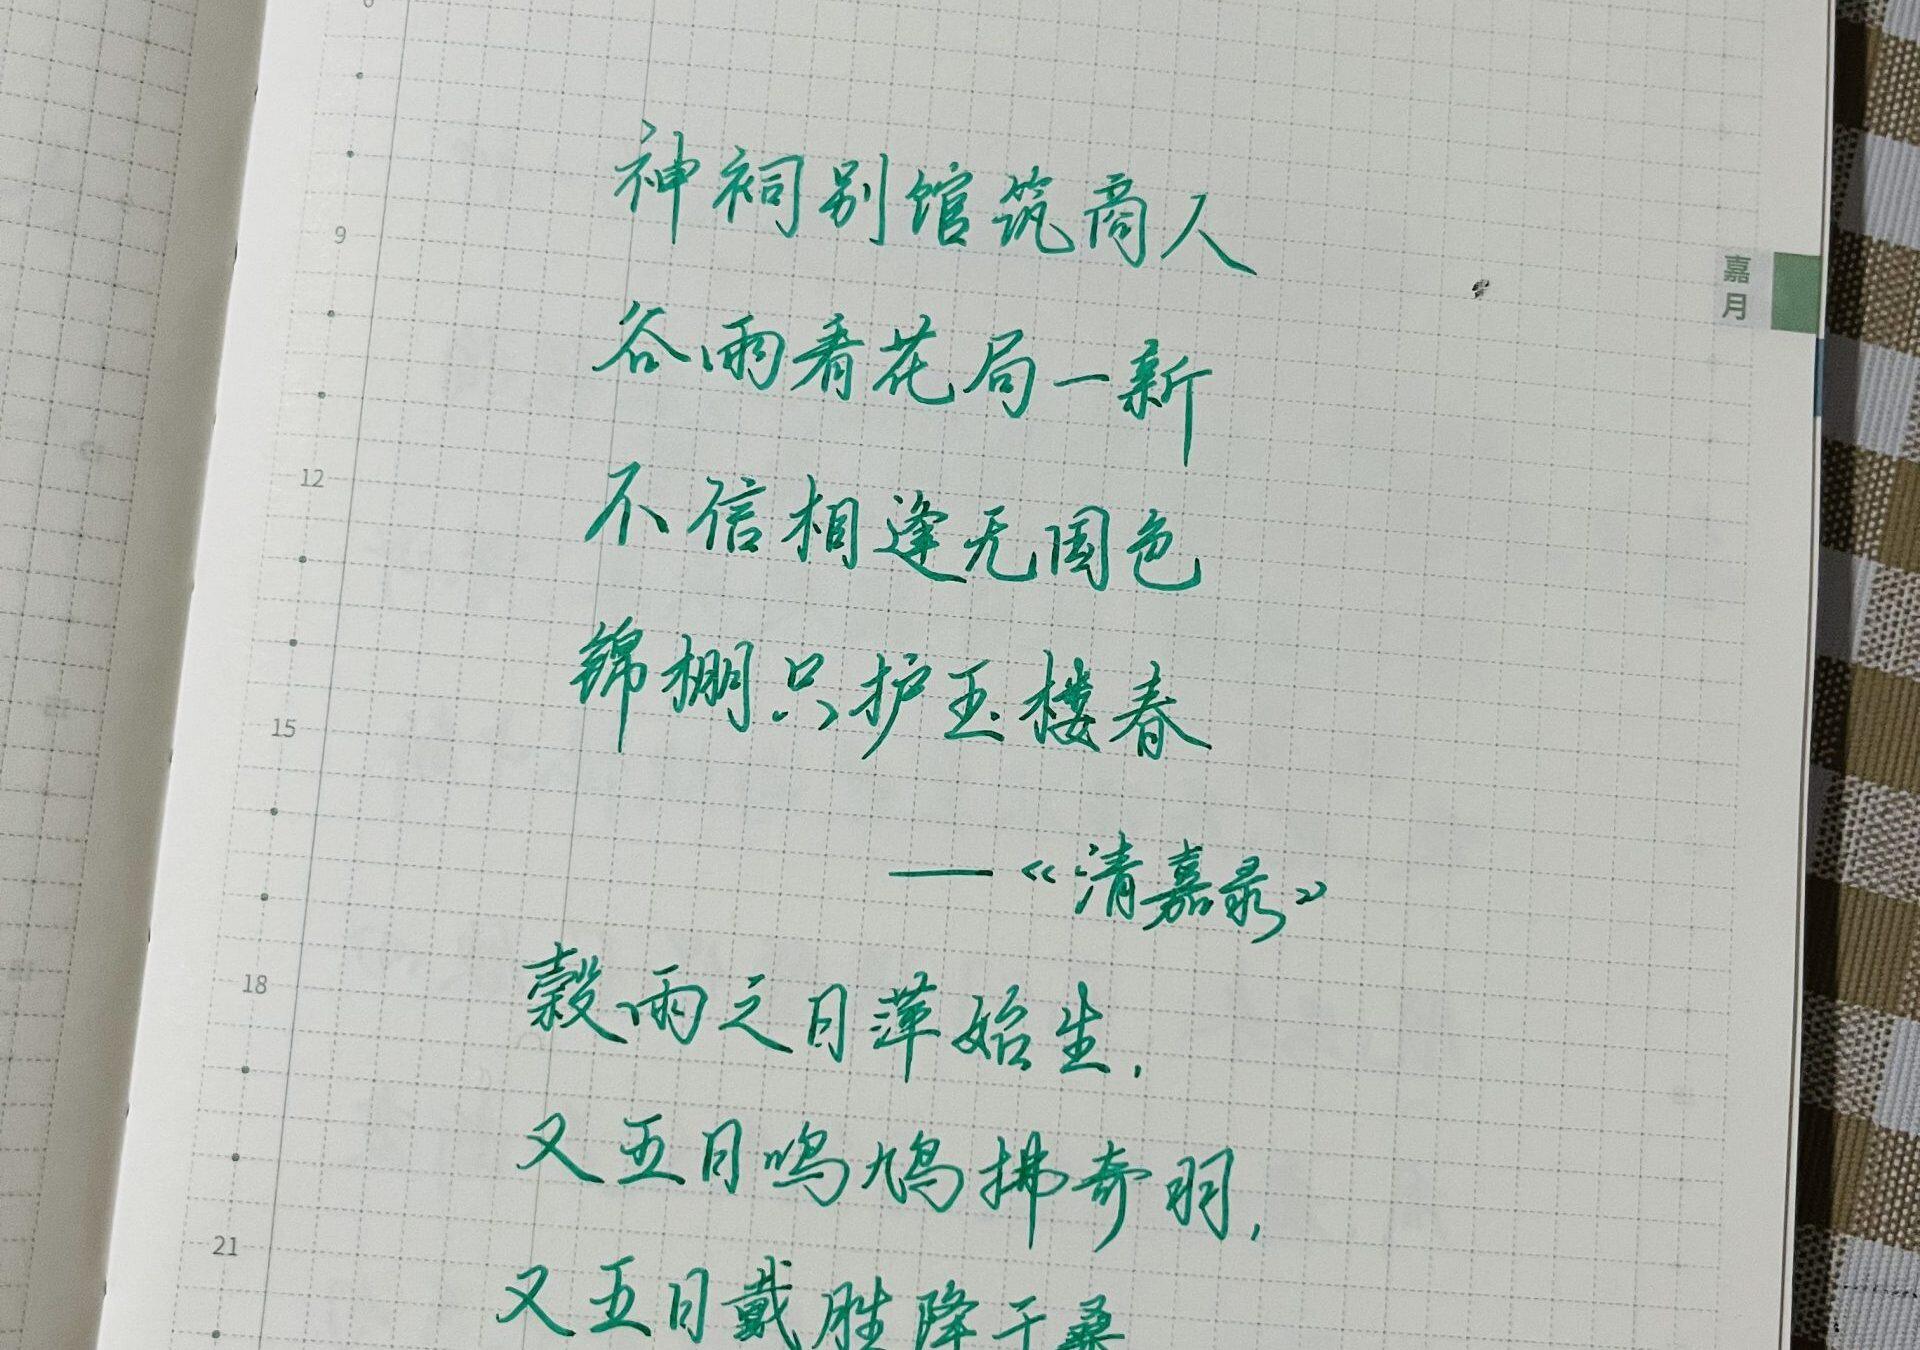 神祠别馆筑商人
谷雨看花局一新
不信相逢无国色
锦棚只护玉楼春
——《清嘉录》
榖雨之日萍始生,
又五日鸣鸠拂奇羽,
又五日戴胜降于桑
9
12
15
18
21
嘉月